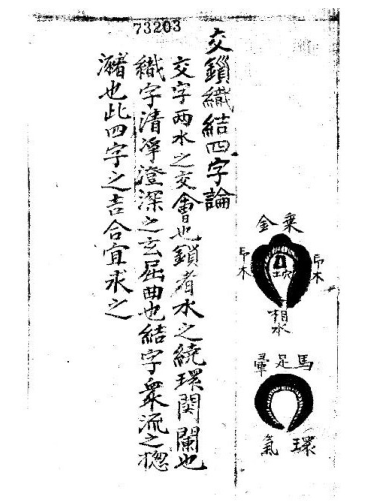 73203
乘金
印木
印木
土穴
相水
馬足暈
環氣
交鎖織結四字論
交字兩水之交會也鎖者水之繞環関闌也
織字清淨澄深之玄屈曲也結字衆流之揔
潴也此四字之吉合宜求之